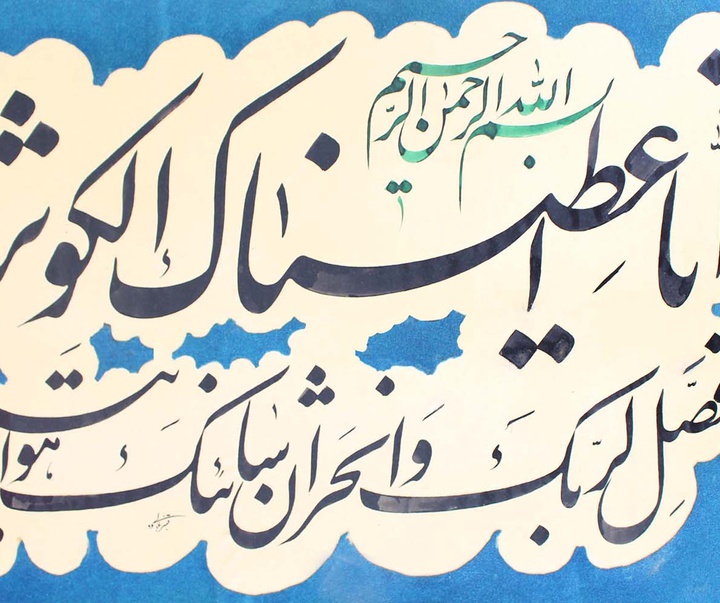 بسم الله الرحمن الرحیم
انا اعطیناک الکوثر
فصل لربک وانحر ان شانئک هو الابتر